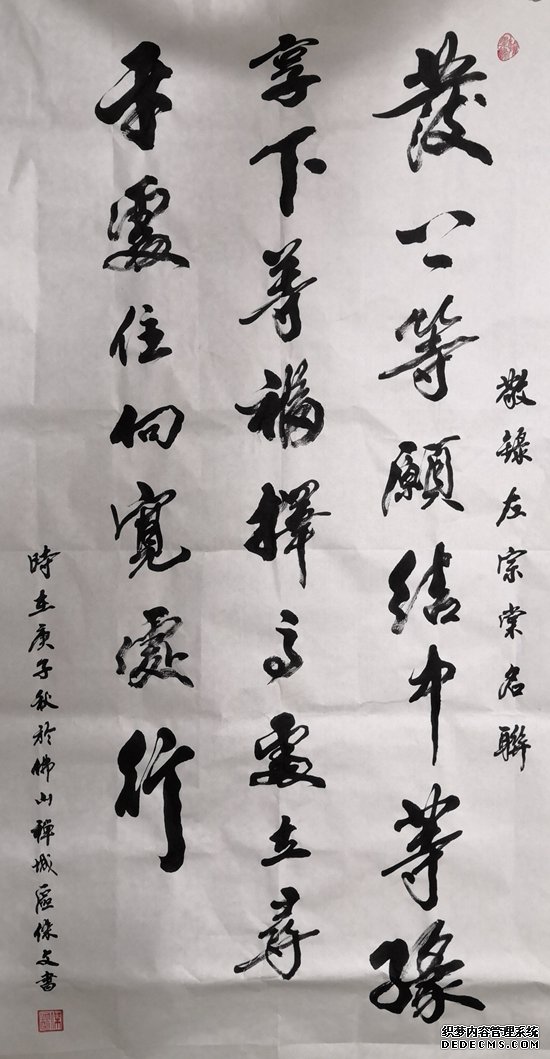 敬錄左宗棠名聯
發上等願結中等緣
享下等福擇高處立尋
平處住向寬處行
時在庚子秋於佛山禪城區文書
织梦内容管理系统
DEDECMS.COM